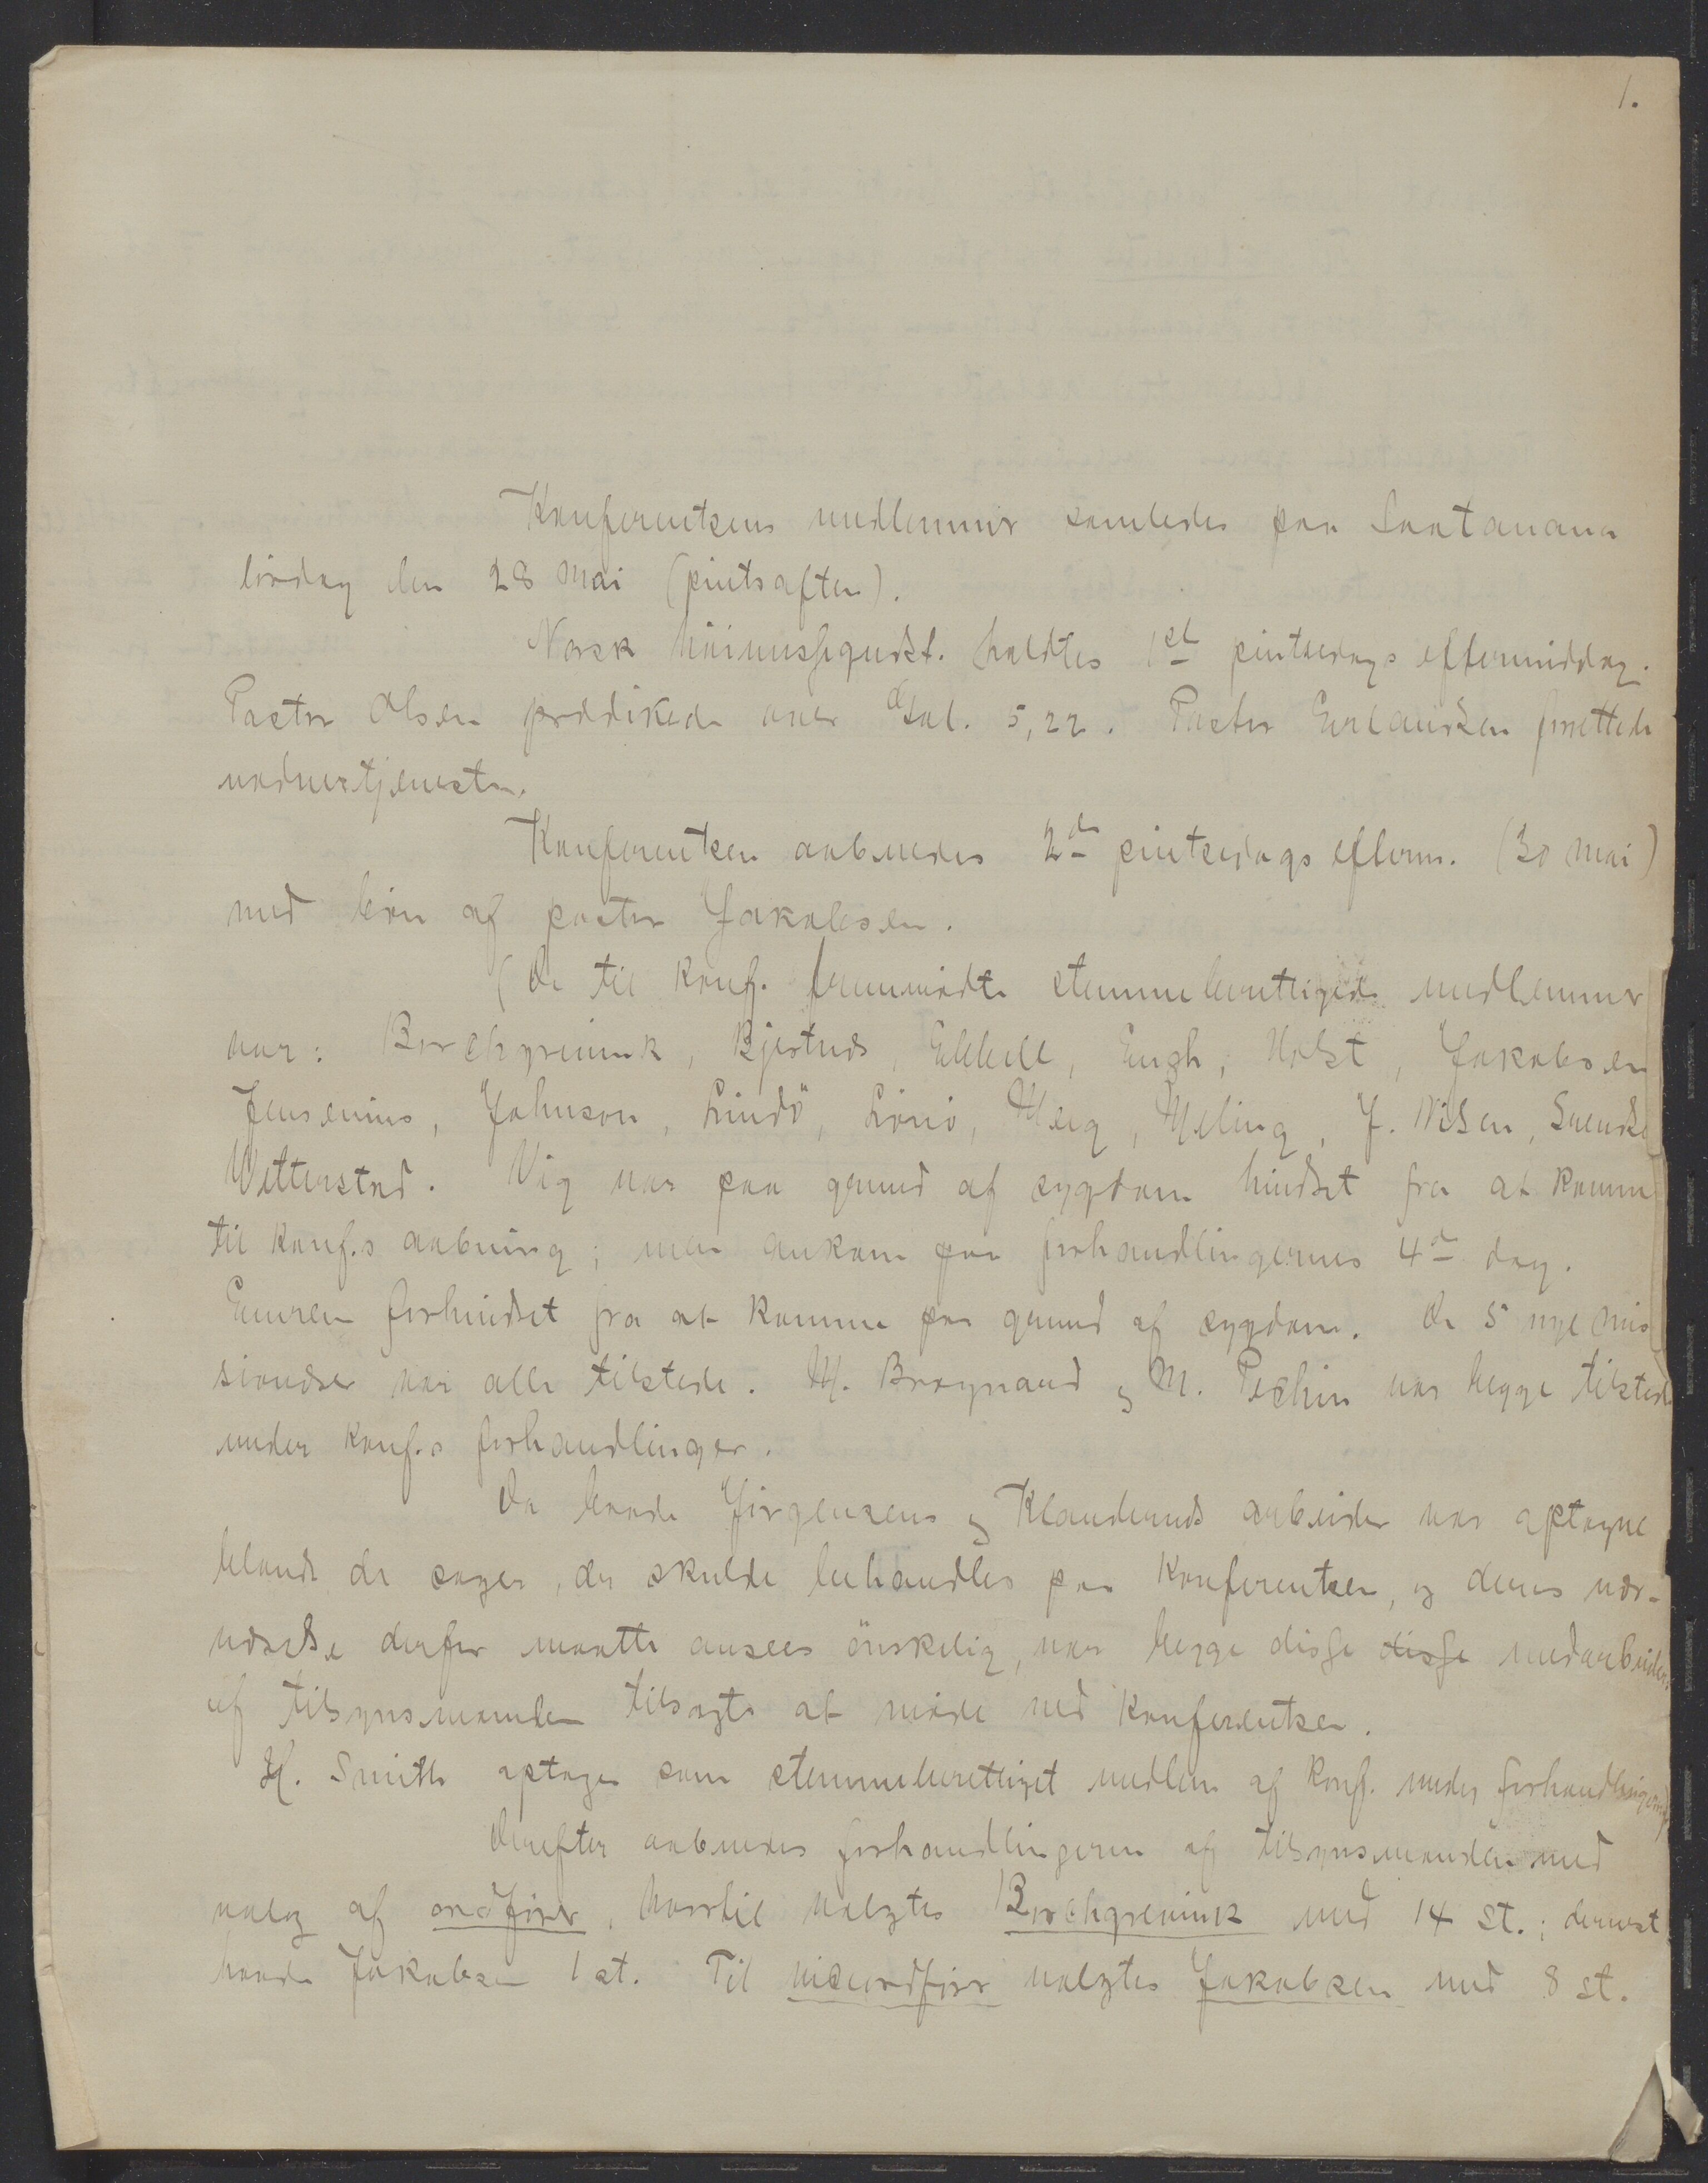 1.
Konferentsens medlemmer samledes paa Soatanana
lördag den 28 Mai (pintsaften).
Norsk höimessegudst. holdtes 1ste pintsedags eftermiddag.
Pastor Olsen prædikede over Gal. 5,22. Pastor Erlandsen forrettede
nadvertjenesten.
Konferentsen aabnedes 2den pintsedags efterm. (30 Mai)
med bön af pastor Jakobsen.
(De til konf. fremmödte stemmeberettigede medlemmer
var: Borchgrevink, Bjertnes, Ebbell, Engh, Holst, Jakobsen
Jensenius, Johnson, Lindö, Lönö, Meeg, Meling, J. Nilsen, Svendse
Wetterstad. Vig var paa grund af sygdom hindret fra at komme
til konf.s aabning; men ankom paa forhandlingernes 4de dag.
Einrem forhindret fra at komme paa grund af sygdom. De 5 nye mis
sionærer var alle tilstede. M. Brognard og M. Pechin var begge tilstede
under konf.s forhandlinger.
Da baade Jörgensens og Klanderuds arbeider var optagne
blandt de sager, der skulde behandles paa Konferentsen, og deres nær-
værelse derfor maatte ansees önskelig, var begge disse disse medarbeidere
af tilsynsmanden tilsagte at möde ved Konferentsen.
H. Smith optoges som stemmeberettiget medlem af konf. under forhandlingerne)
Derefter aabnedes forhandlingerne af tilsynsmanden med
valg af ordförer, hvortil valgtes Borchgrevink med 14 st.; dernæst
havde Jakobsen 1 st. Til viceordförer valgtes Jakobsen med 8 st.